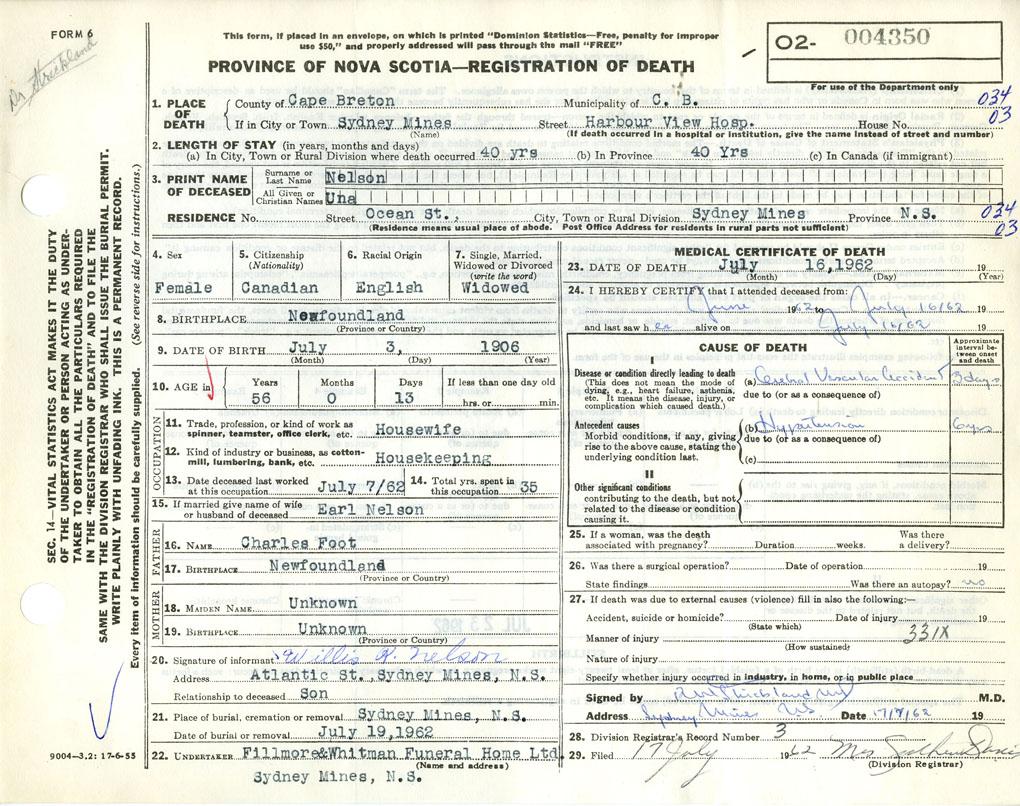 FORM 6
Dr Strickland
This form, if placed in an envelope, on which is printed "Dominion Statistics—Free, penalty for improper
use $50," and properly addressed will pass through the mail "FREE"
PROVINCE OF NOVA SCOTIA—REGISTRATION OF DEATH
02- 004350
For use of the Department only
034
03
1. PLACE OF DEATH
County of Cape Breton Municipality of C. B.
If in City or Town Sydney Mines Street Harbour View Hosp. House No.
(Name) (If death occurred in a hospital or institution, give the name instead of street and number)
2. LENGTH OF STAY (in years, months and days)
(a) In City, Town or Rural Division where death occurred 40 yrs (b) In Province 40 Yrs (c) In Canada (if immigrant)
3. PRINT NAME OF DECEASED
Surname or Last Name Nelson
All Given or Christian Names Una
RESIDENCE No. Street Ocean St., City, Town or Rural Division Sydney Mines Province N.S. 034
(Residence means usual place of abode. Post Office Address for residents in rural parts not sufficient) 03
4. Sex Female
5. Citizenship (Nationality) Canadian
6. Racial Origin English
7. Single, Married, Widowed or Divorced (write the word) Widowed
8. BIRTHPLACE Newfoundland
(Province or Country)
9. DATE OF BIRTH July 3, 1906
(Month) (Day) (Year)
10. AGE in
Years Months Days If less than one day old
56 0 13 hrs. or min.
OCCUPATION
11. Trade, profession, or kind of work as
spinner, teamster, office clerk, etc. Housewife
12. Kind of industry or business, as cotton-
mill, lumbering, bank, etc. Housekeeping
13. Date deceased last worked at this occupation July 7/62 14. Total yrs. spent in this occupation 35
15. If married give name of wife or husband of deceased Earl Nelson
FATHER
16. NAME Charles Foot
17. BIRTHPLACE Newfoundland
(Province or Country)
MOTHER
18. MAIDEN NAME Unknown
19. BIRTHPLACE Unknown
(Province or Country)
20. Signature of informant Willis R. Nelson
Address Atlantic St., Sydney Mines, N.S.
Relationship to deceased Son
21. Place of burial, cremation or removal Sydney Mines, N.S.
Date of burial or removal July 19,1962
22. UNDERTAKER Fillmore&Whitman Funeral Home Ltd
(Name and address)
Sydney Mines, N.S.
MEDICAL CERTIFICATE OF DEATH
23. DATE OF DEATH July 16,1962 19
(Month) (Day) (Year)
24. I HEREBY CERTIFY that I attended deceased from:
June 1962 to July 16/62 19
and last saw her alive on July 16/62 19
CAUSE OF DEATH
Approximate interval between onset and death
I
Disease or condition directly leading to death
(This does not mean the mode of
dying, e.g., heart failure, asthenia,
etc. It means the disease, injury, or
complication which caused death.)
(a) Cerebral Vascular Accident 3 days
due to (or as a consequence of)
Antecedent causes
Morbid conditions, if any, giving
rise to the above cause, stating the
underlying condition last.
(b) Hypertension 6 yrs
due to (or as a consequence of)
(c)
II
Other significant conditions
contributing to the death, but not
related to the disease or condition
causing it.
25. If a woman, was the death associated with pregnancy? Duration weeks. Was there a delivery?
26. Was there a surgical operation? Date of operation 19
State findings Was there an autopsy? no
27. If death was due to external causes (violence) fill in also the following:—
Accident, suicide or homicide? Date of injury 19
(State which)
331X
Manner of injury
(How sustained)
Nature of injury
Specify whether injury occurred in industry, in home, or in public place
Signed by R W Strickland MD M.D.
Address Sydney Mines N.S. Date 17/7/62 19
28. Division Registrar's Record Number 3
29. Filed 17 July 1962 Mrs
(Division Registrar)
SEC. 14—VITAL STATISTICS ACT MAKES IT THE DUTY
OF THE UNDERTAKER OR PERSON ACTING AS UNDER-
TAKER TO OBTAIN ALL THE PARTICULARS REQUIRED
IN THE "REGISTRATION OF DEATH" AND TO FILE THE
SAME WITH THE DIVISION REGISTRAR WHO SHALL ISSUE THE BURIAL PERMIT.
WRITE PLAINLY WITH UNFADING INK. THIS IS A PERMANENT RECORD.
Every item of information should be carefully supplied. (See reverse side for instructions.)
9004—3,2: 17-6-55